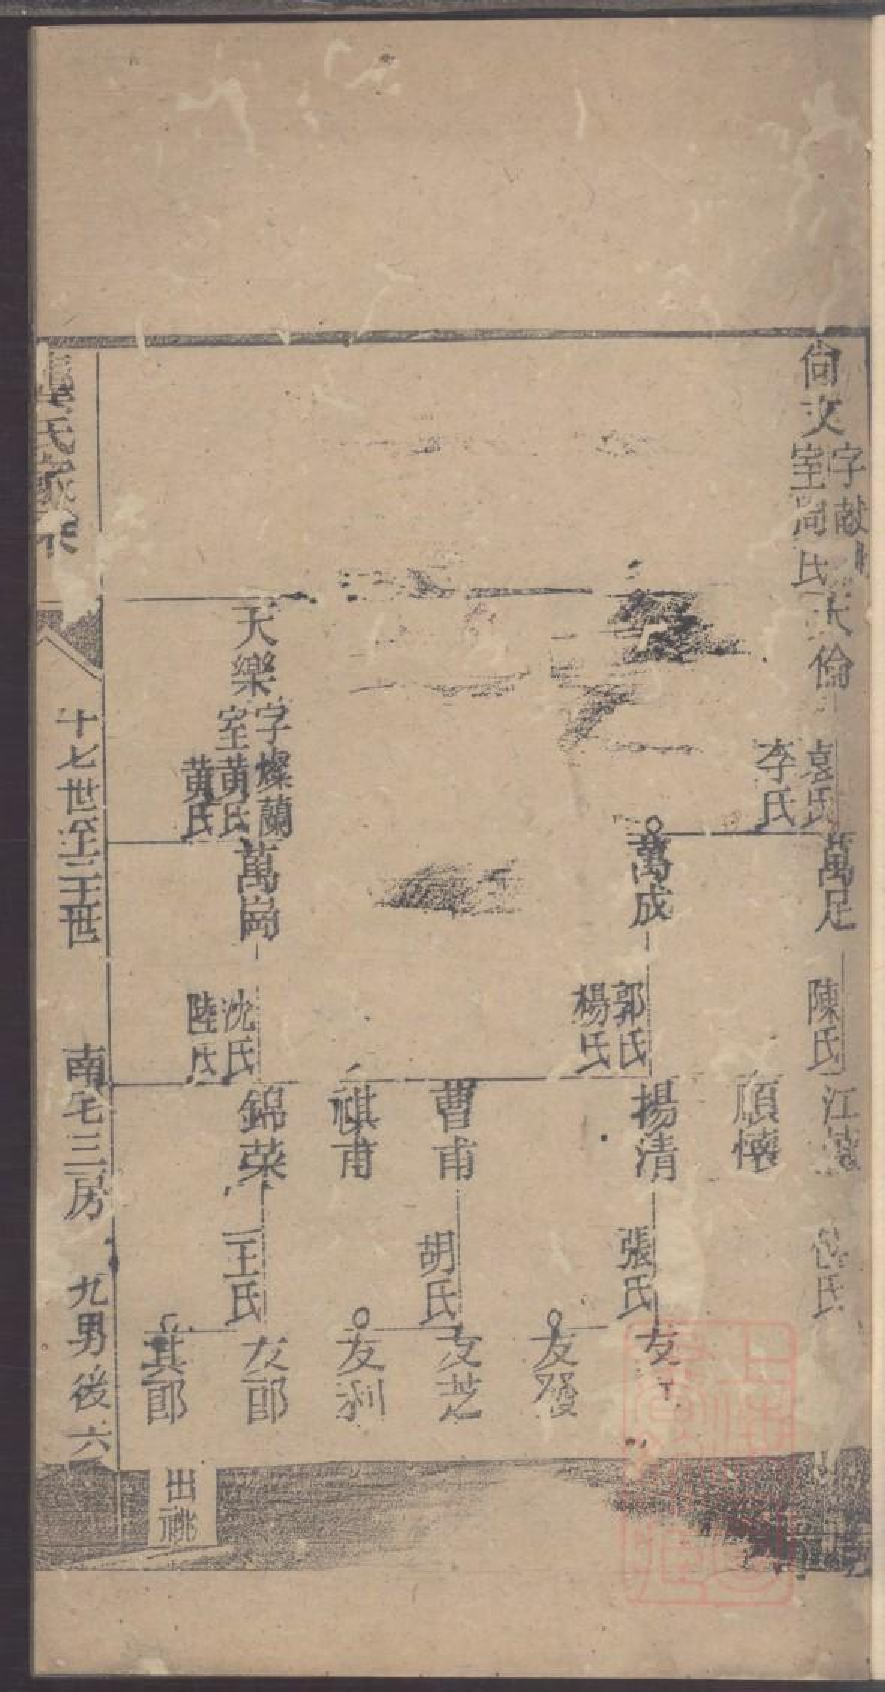 尙文
字献
室周氏
天倫
袁氏
李氏
萬足
陳氏
江懷
氏
順懷
萬成
郭氏
楊氏
揚清
張氏
友
友發
曹甫
胡氏
友芝
友利
祺甫
天樂
字燦蘭
室黄氏
黄氏
萬崗
沈氏
陸氏
錦菜
王氏
友郎
其郎
出祧
氏家
十七世至二十一世
南宅三房
九男後六